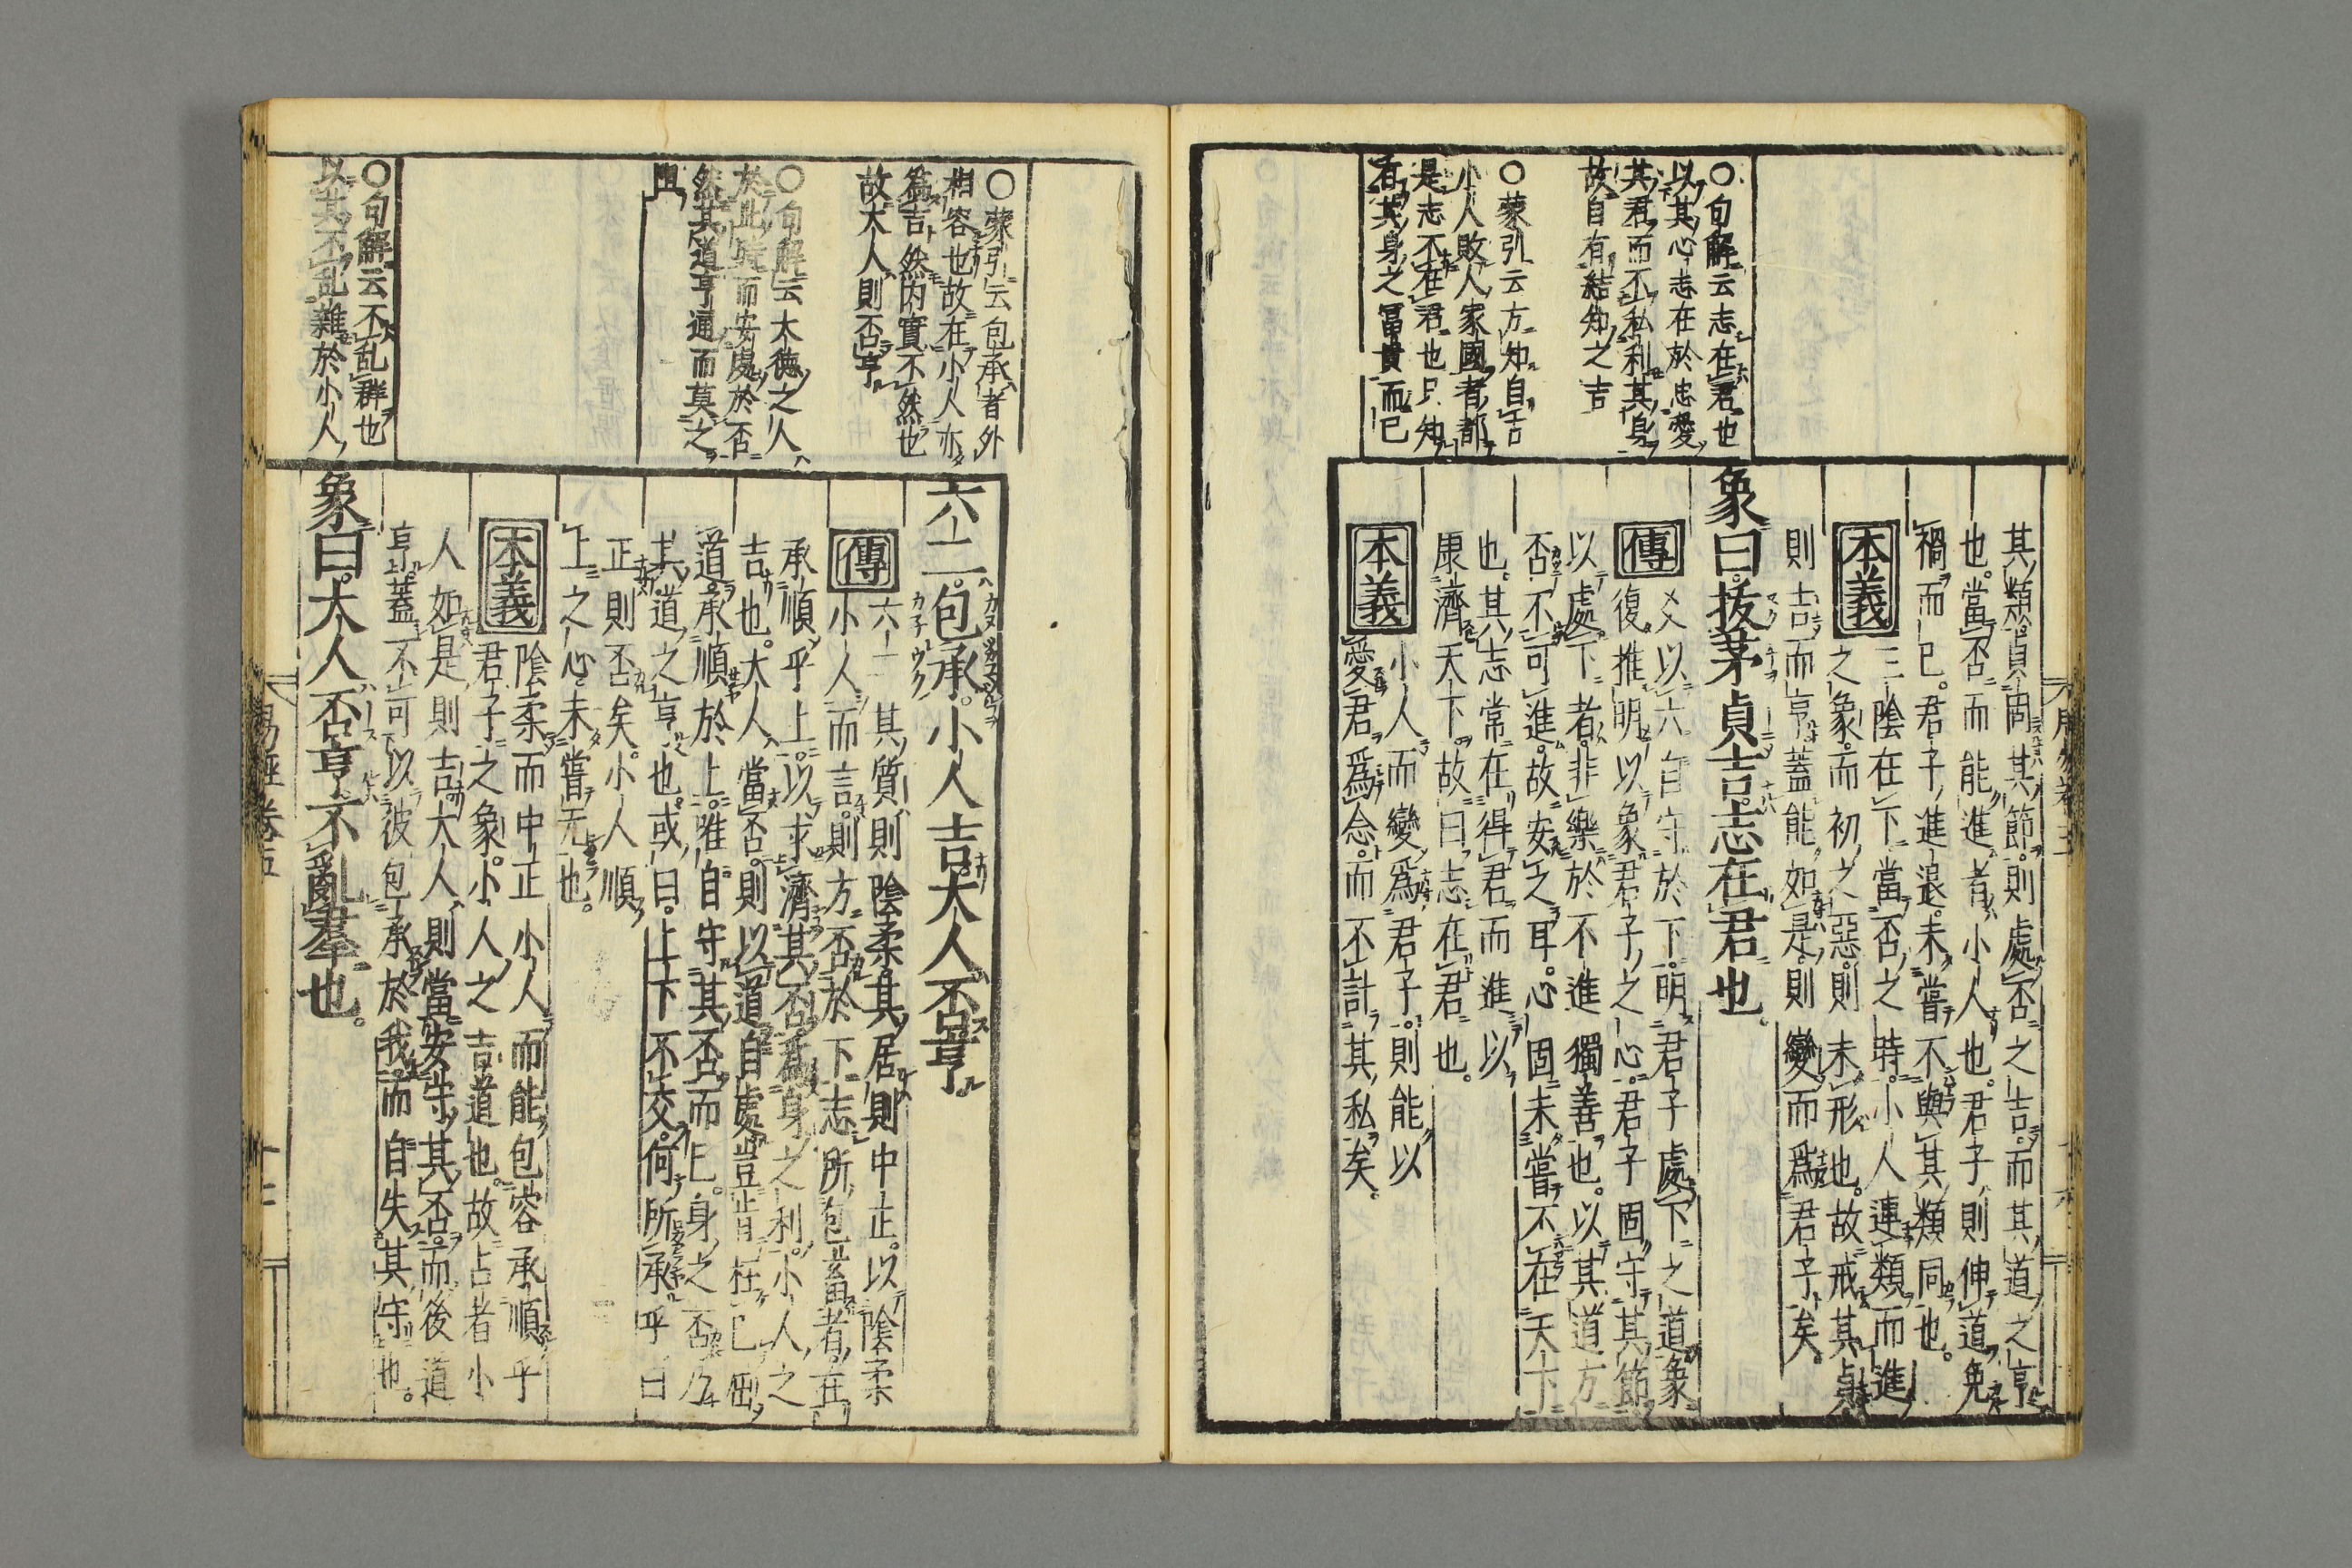 ○句解云志在君也
以其心志在於忠愛
其君而不私利其身
故自有結知之吉
○蒙引云方知自古
小人敗人家國者都
是志不在君也只知
有其身之冨貴而已
其類貞固其節則處否之吉而其道之亨
也當否而能進者小人也君子則伸道免
禍而已君子進退未嘗不與其類同也
本義
三陰在下當否之時小人連類而進
之象而初之惡則未形也故戒其貞
則吉而亨蓋能如是則變而爲君子矣
象曰拔茅貞吉志在君也
傳
爻以六自守於下明君子處下之道象
復推明以象君子之心君子固守其節
以處下者非樂於不進獨善也以其道方
否不可進故安之耳心固未嘗不在天下
也其志常在得君而進以
康濟天下故曰志在君也
本義
小人而變爲君子則能以
愛君爲念而不計其私矣
○蒙引云包承者外
相容也故在小人亦
爲吉然內實不然也
故大人則否亨
○句解云大德之人
於此時而安處於否
然其道亨通而莫之
○句解云不乱群也
以其不乱雜於小人
六二包承小人吉大人否亨
傳
六二其質則陰柔其居則中正以陰柔
小人而言則方否於下志所包畜者在
承順乎上以求濟其否爲身之利小人之
吉也大人當否則以道自處豈肯枉己屈
道承順於上唯自守其否而已身之否乃
其道之亨也或曰上下不交何所承乎曰
正則否矣小人順
上之心未嘗无也
本義
陰柔而中正小人而能包容承順乎
君子之象小人之吉道也故占者小
人如是則吉大人則當安守其否而後道
亨蓋不可以彼包承於我而自失其守也
象曰大人否亨不亂羣也
易經卷五